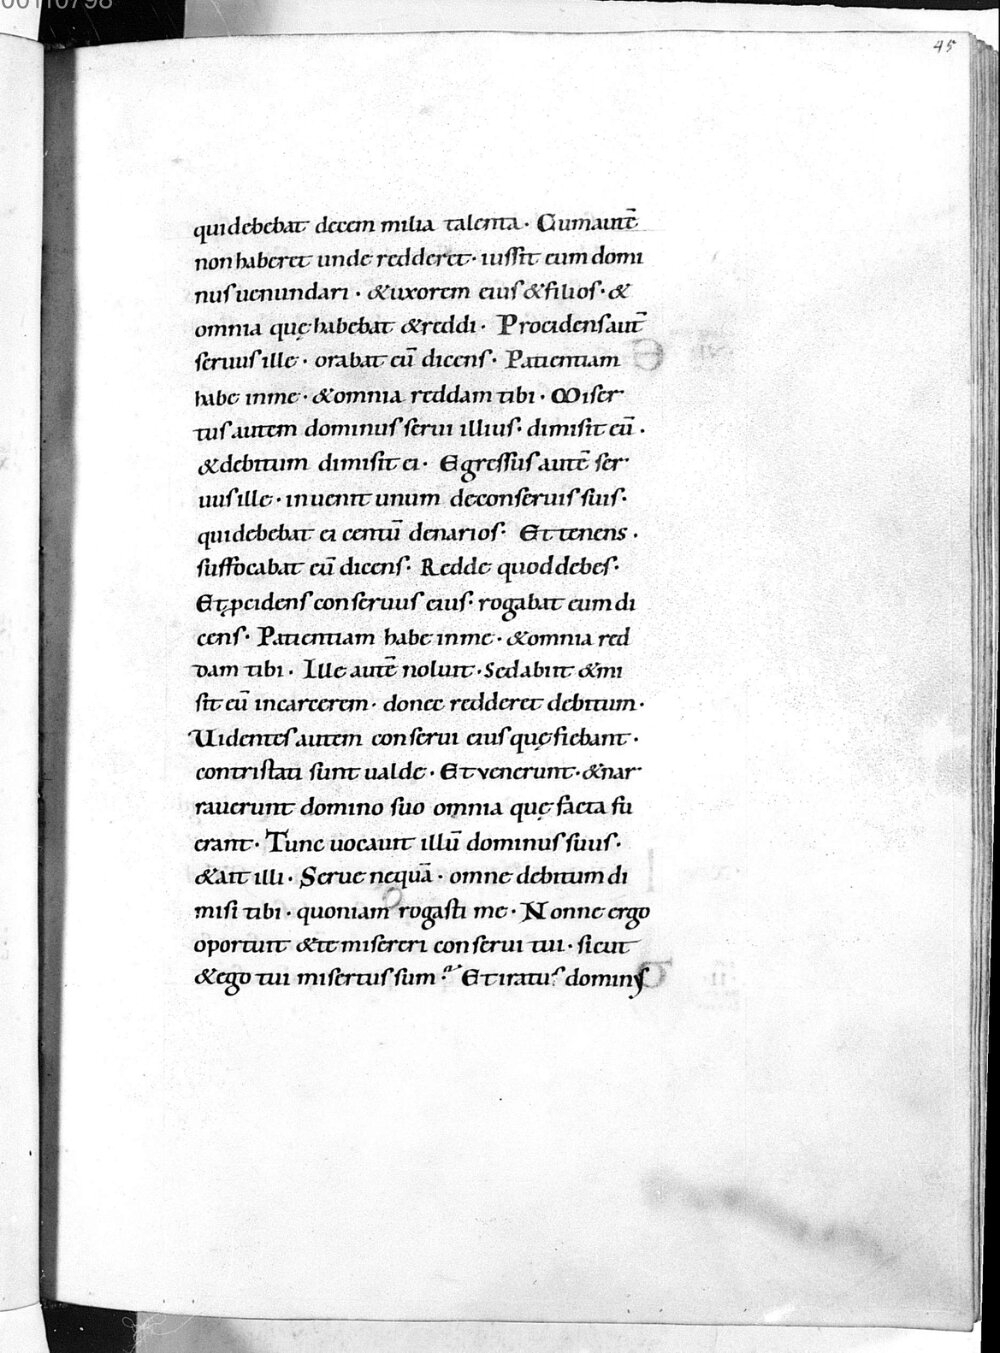 00110798
45
qui debebat decem milia talenta · Cum autē
non haberet unde redderet · iussit eum domi
nus uenundari · & uxorem eius & filios · &
omnia quę habebat & reddi · Procidens aut̄
seruus ille · orabat eū dicens · Patientiam
habe in me · & omnia reddam tibi · Miser
tus autem dominus serui illius · dimisit eū ·
& debitum dimisit ei · Egressus autē ser
uus ille · inuenit unum de conseruis suis ·
qui debebat ei centū denarios · Et tenens ·
suffocabat eū dicens · Redde quod debes ·
Et ꝓcidens conseruus eius · rogabat eum di
cens · Patientiam habe in me · & omnia red
dam tibi · Ille autē noluit · Sed abiit & mi
sit eū in carcerem · donec redderet debitum ·
Uidentes autem conserui eius quę fiebant ·
contristati sunt ualde · Et venerunt · & nar
rauerunt domino suo omnia quę facta fu
erant · Tunc uocauit illū dominus suus ·
& ait illi · Serue nequā · omne debitum di
misi tibi · quoniam rogasti me · Nonne ergo
oportuit & te misereri conserui tui · sicut
& ego tui misertus sum ? Et iratus dominus